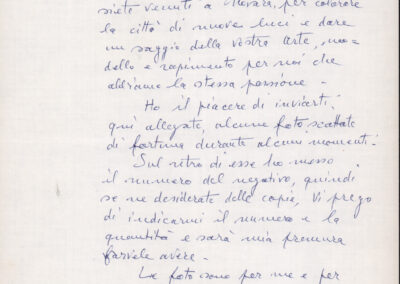 siete venuti a Novara, per colorare
la città di nuove luci e dare
un saggio della vostra arte, mo=
dello e rapimento per noi che
abbiamo la stessa passione -
Ho il piacere di inviarti,
qui allegate, alcune foto scattate
di fortuna durante alcuni momenti.
Sul retro di esse ho messo
il numero del negativo, quindi
se ne desiderate delle copie, Vi prego
di indicarmi il numero e la
quantità e sarà mia premura
farvele avere -
Le foto sono per me e per